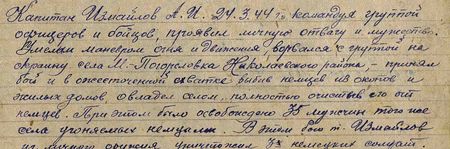 Капитан Измайлов А.И. 24.3.44 г. командуя группой
офицеров и бойцов, проявил личную отвагу и мужество.
Умелым маневром огня и движения ворвался с группой на
окраину села М.-Погореловка Николаевского района – принял
бой и в ожесточенной схватке выбив немцев из окопов и
жилых домов, овладел селом, полностью очистив его от
немцев. При этом было освобождено 35 мужчин того же
села угоняемых немцами. В этом бою т. Измайлов
из личного оружия уничтожил 3х немецких солдат.